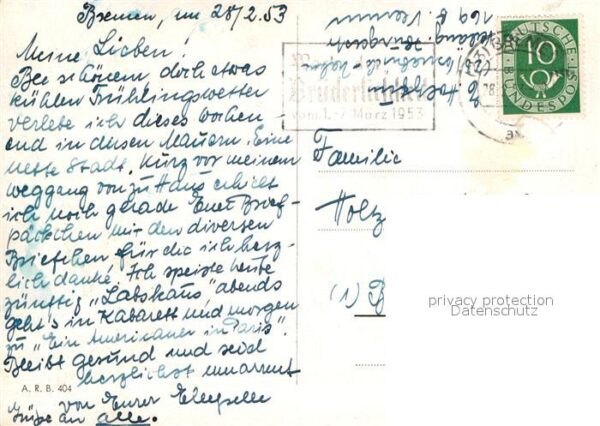 Bremen, am 28/2.53
Meine Lieben!
Bei schönem doch etwas
kühlen Frühlingswetter
verlebe ich dieses Wochen-
end in diesen Mauern. Eine
nette Stadt. Kurz vor meinem
Weggang von zu Haus erhielt
ich noch gerade Euer Brief-
päckchen mit den diversen
Briefchen für die ich herz-
lich danke. Ich speiste heute
zünftig "Labskaus" abends
geht's in Kabarett und morgen
zu "Ein Amerikaner in Paris".
Bleibt gesund und seid
herzlichst umarmt
von Eurer
Grüße an alle.
A. R. B. 404
Brüderlichkeit
vom 1.-7. März 1953
DEUTSCHE
10
BUNDESPOST
Familie
Holz
(1) B
privacy protection
Datenschutz